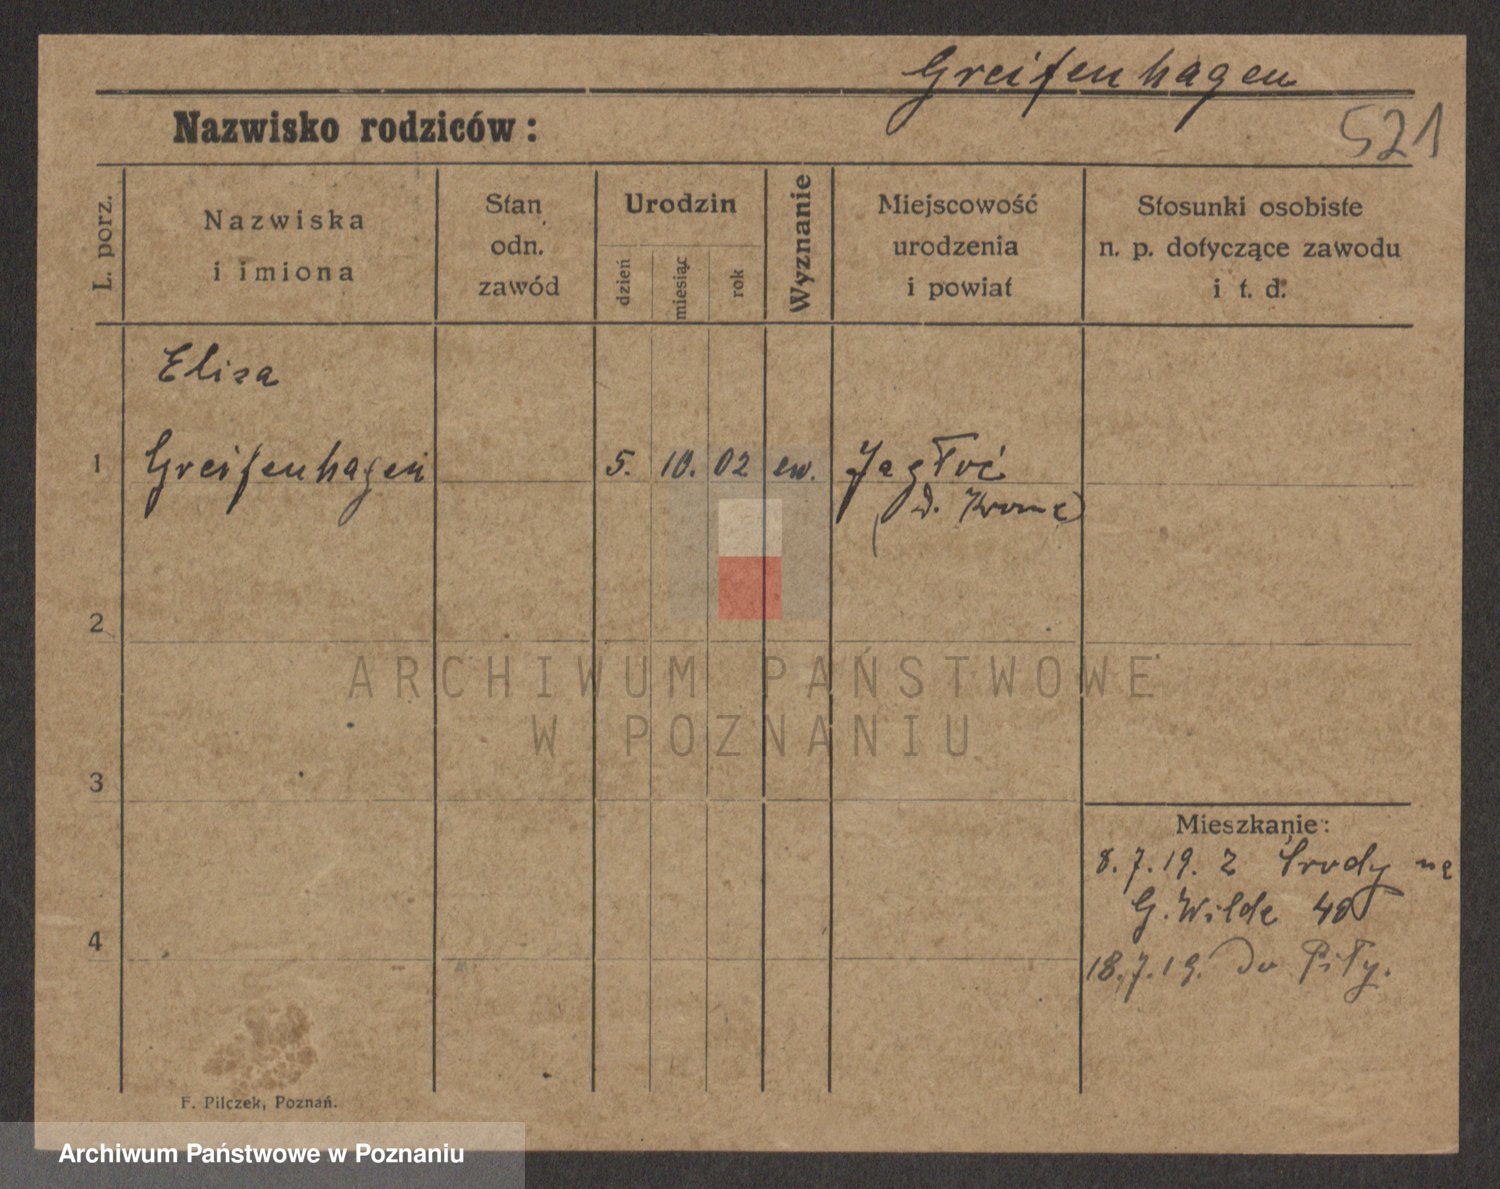 Greifenhagen
Nazwisko rodziców:
521
L. porz.
Nazwiska
i imiona
Stan
odn.
zawód
Urodzin
dzień
miesiąc
rok
Wyznanie
Miejscowość
urodzenia
i powiat
Stosunki osobiste
n. p. dotyczące zawodu
i t. d.
Eliza
1 Greifenhagen 5. 10. 02 ew. Jagłoć
(D. Krone)
2
3
4
ARCHIWUM PAŃSTWOWE
W POZNANIU
Mieszkanie:
8.7.19. z Środy na
G. Wilde 40
18.7.19. do Piły.
F. Pilczek, Poznań.
Archiwum Państwowe w Poznaniu